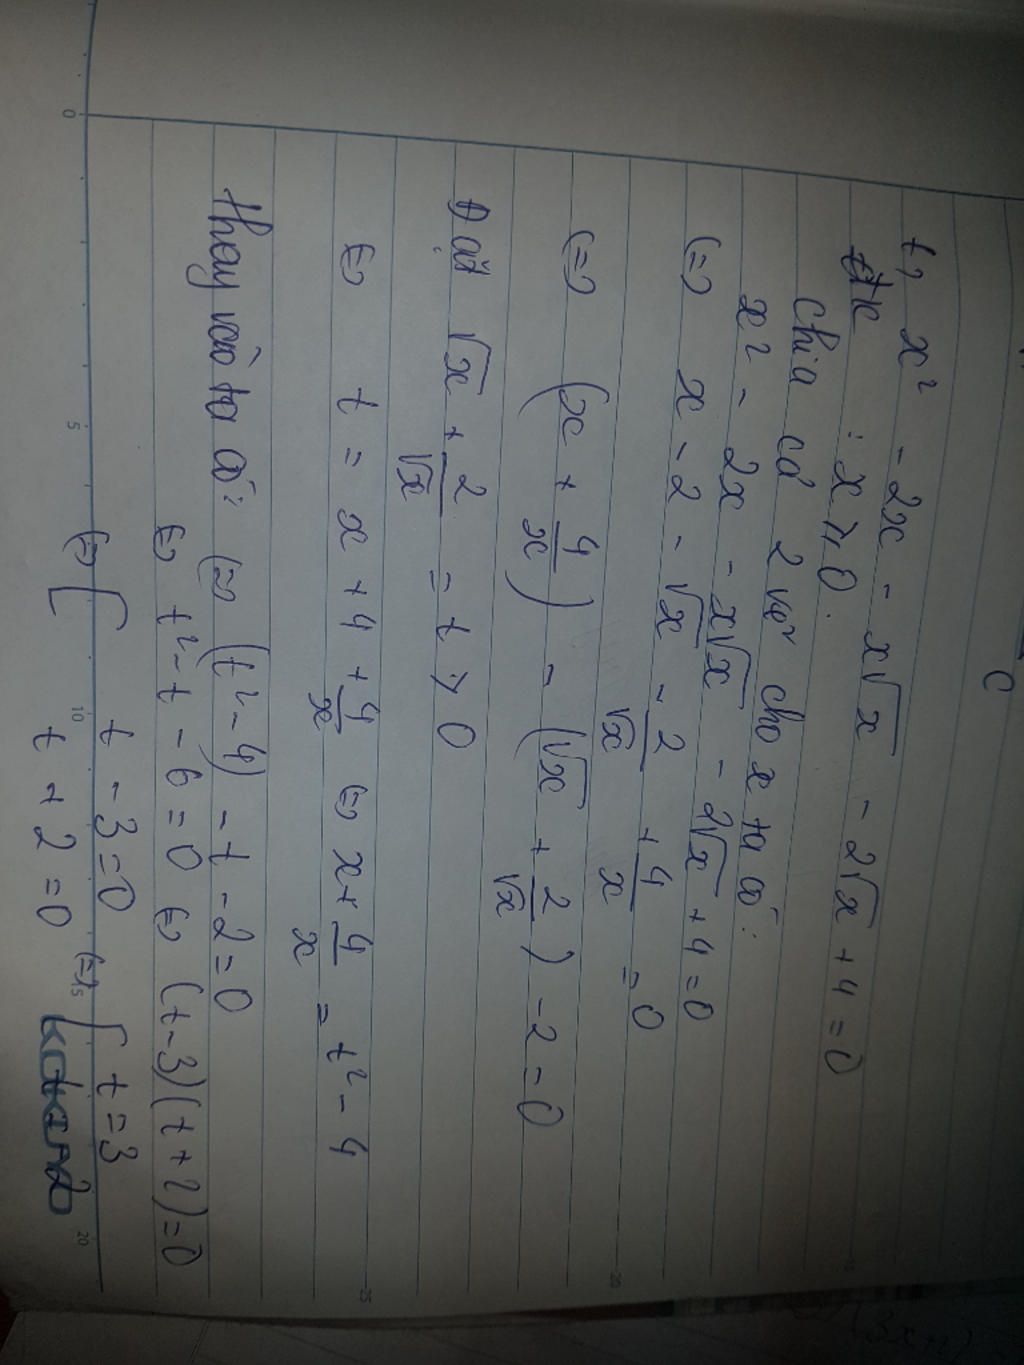 C
t, x² - 2x - x√x - 2√x + 4 = 0
đk : x ≥ 0.
chia cả 2 vế cho x ta có:
x² - 2x - x√x - 2√x + 4 = 0
(=) x - 2 - √x - 2/√x + 4/x = 0
(=) (x + 4/x) - (√x + 2/√x) - 2 = 0
Đặt √x + 2/√x = t > 0
(=) t = x + 4 + 4/x (=) x + 4/x = t² - 4
thay vào ta có: (=) (t² - 4) - t - 2 = 0
(=) t² - t - 6 = 0 (=) (t - 3)(t + 2) = 0
(=) [ t - 3 = 0 (=) [ t = 3
t + 2 = 0
0 5 10 15 20
25